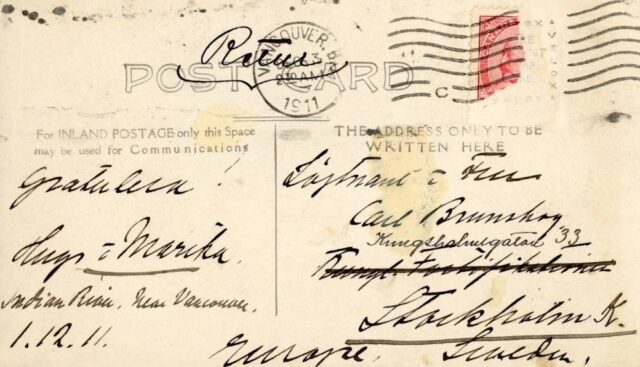 Retur
VANCOUVER, B.C.
DEC 3
2 30 AM
1911
C
POST CARD
For INLAND POSTAGE only this Space
may be used for Communications
THE ADDRESS ONLY TO BE
WRITTEN HERE
Gratulera!
Hugo & Marika.
Indian River. Near Vancouver.
1.12.11.
Löjtnant & Fru
Carl Brunskog
Kungsholmsgatan 33
Kungl. Fortifikationen
Stockholm K.
Europe. Sweden.